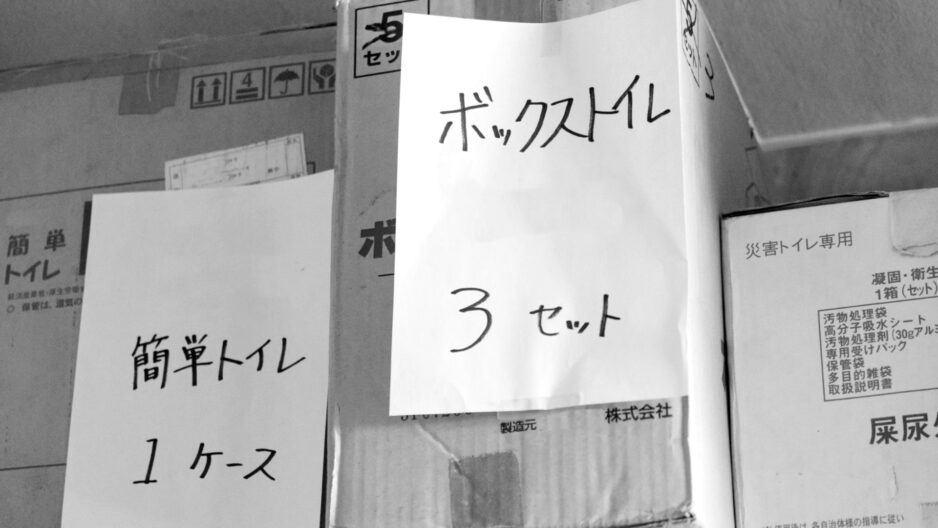 4
簡単
トイレ
○ 保管は、湿気の
簡単トイレ
1 ケース
5
セッ
ボックストイレ
3 セット
ボ
製造元
株式会社
災害トイレ専用
凝固・衛生
1箱(セット)
汚物処理袋
高分子吸水シート
汚物処理剤(30gアルミ
専用受けパック
保管袋
多目的雑袋
取扱説明書
屎尿
使用後は、各自治体様の指導に従い